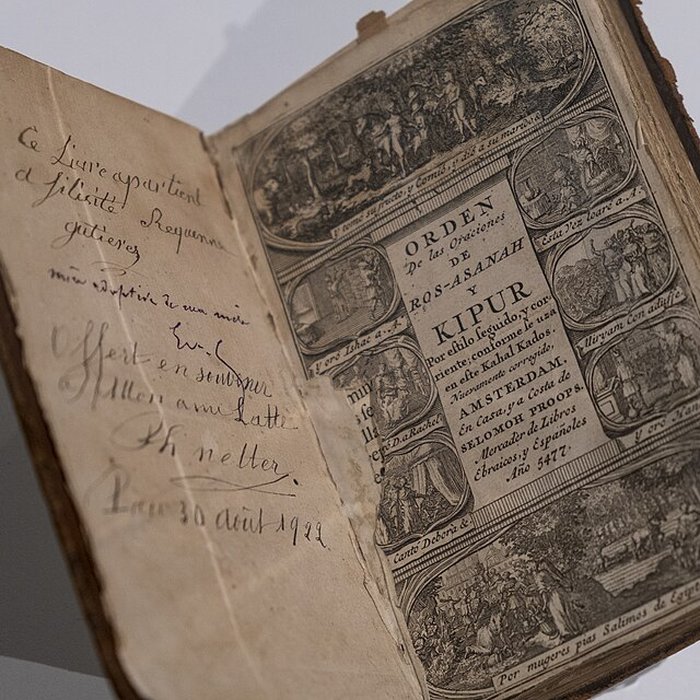 Ce Livre apartient
a félisité Requenne
gutieres
mère adoptive de ma mère
Offert en souvenir
A Mon ami Latte
Ph netter.
Pau 30 août 1922
y tomó su fructo, y Comió, y dió a su marido &.
ORDEN
De las Oraciones
DE
ROS-ASANAH
Y
KIPUR
Por estilo seguido, y cor-
riente; conforme se usa
en este Kahal Kados.
Nuevamente corregido,
AMSTERDAM,
En Casa, y a Costa de
SELOMOH PROOPS.
Mercader de Libros
Ebraicos, y Españoles
Año 5477.
y oro Ishac a. A.
D. a Rachel
Cantó Debora &.
Esta vez loaré a. A.
Miryam Con adufe
y oro
Por mugeres pias Salimos de